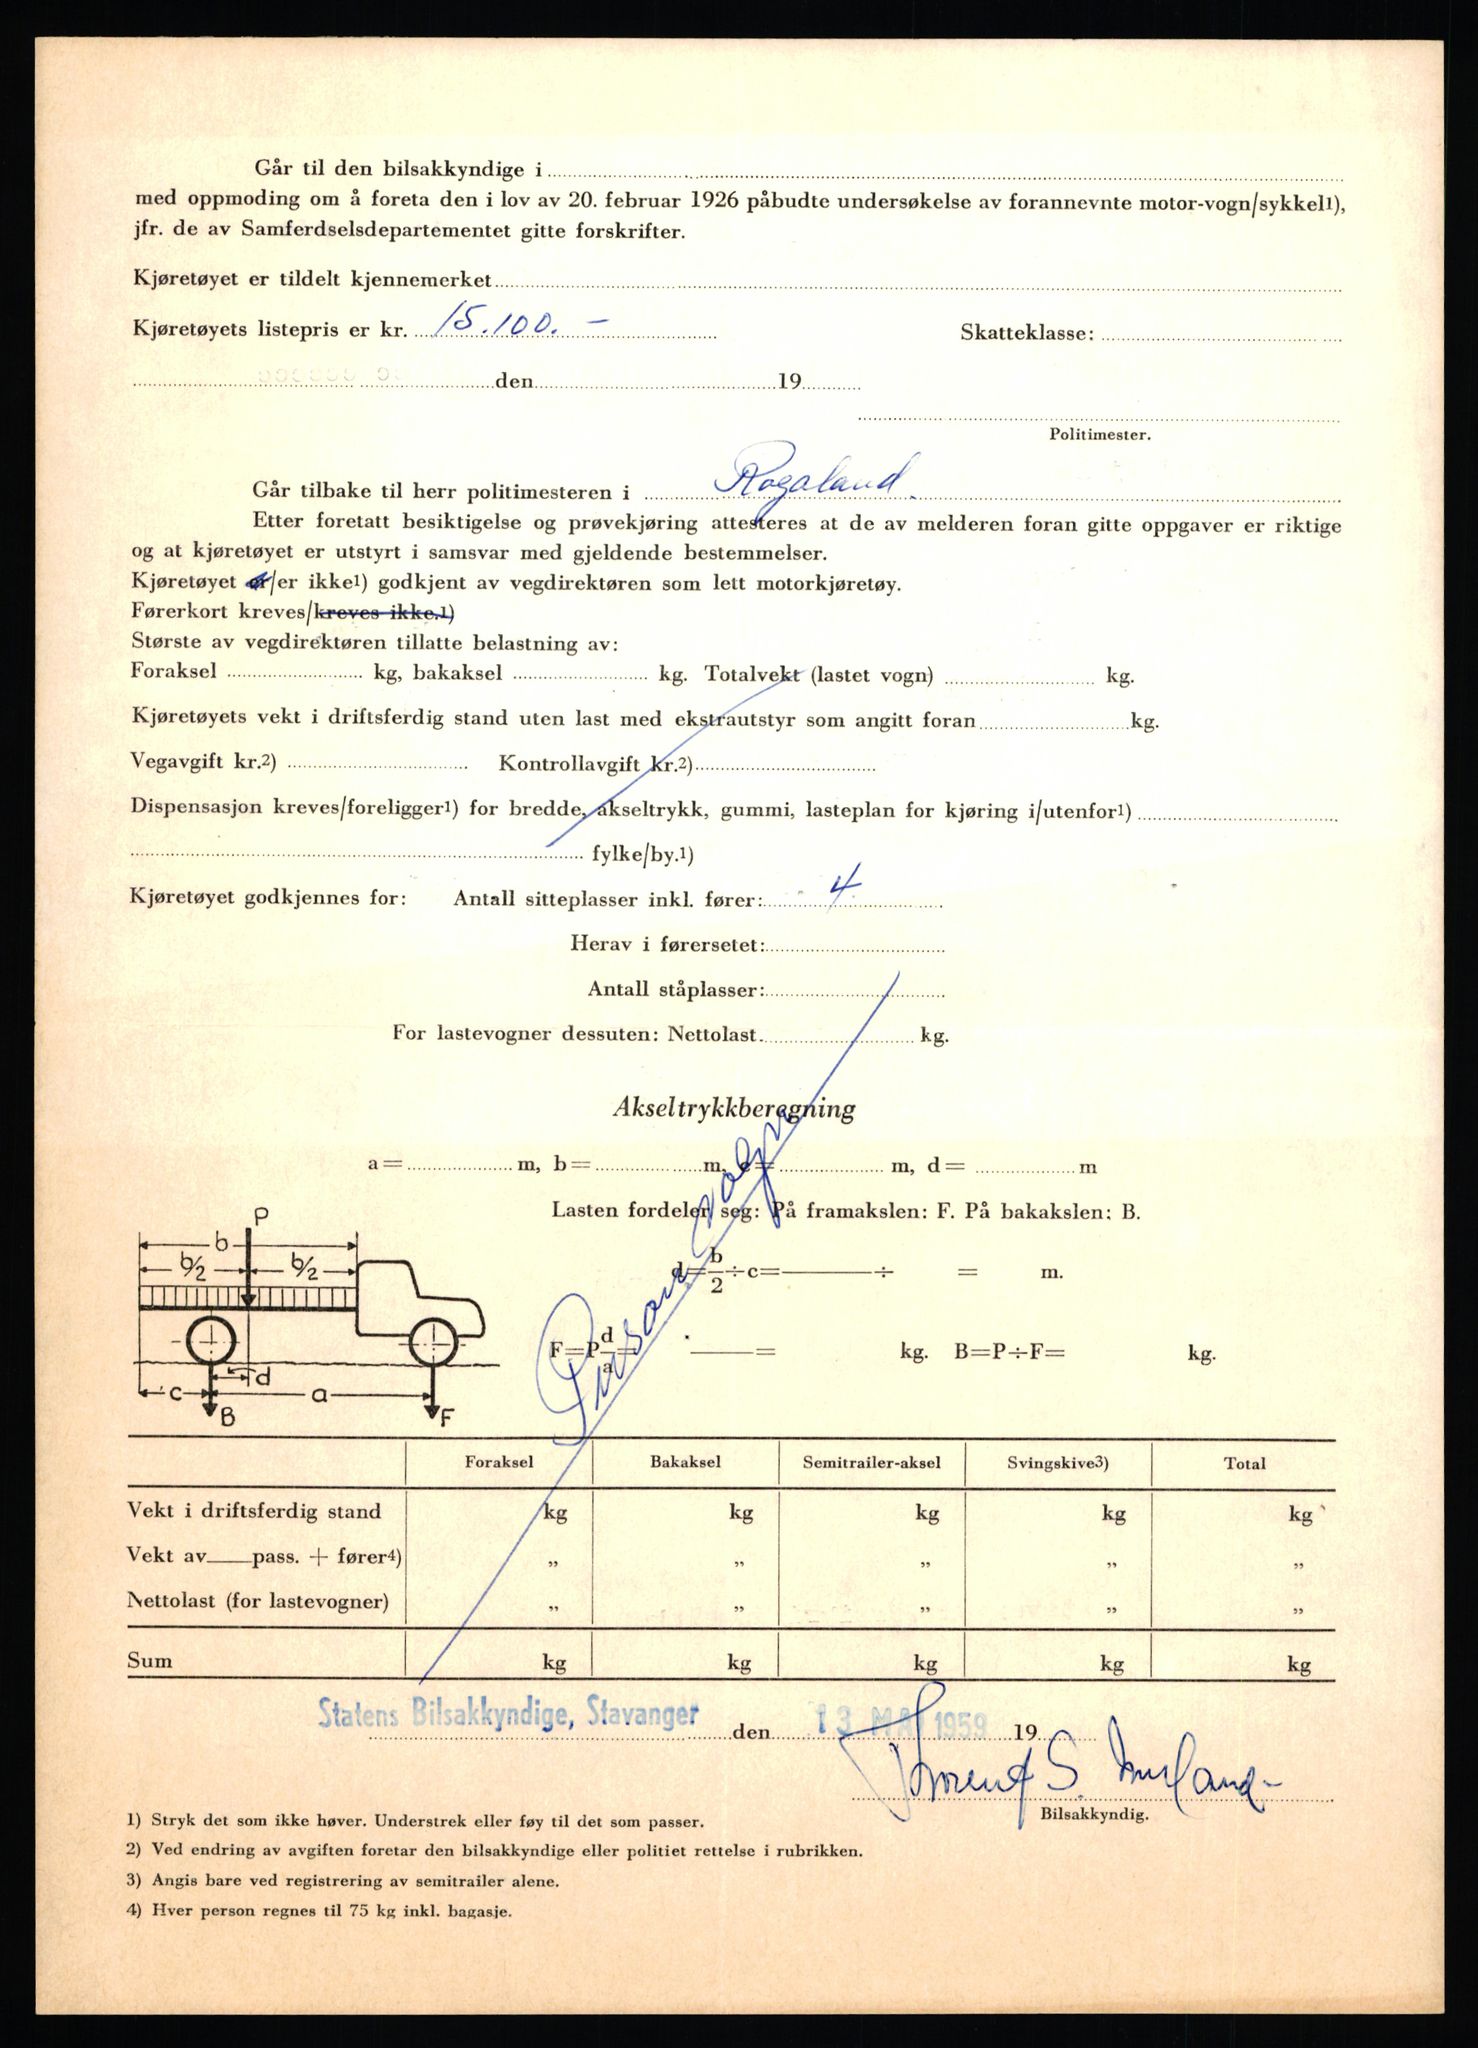 Går til den bilsakkyndige i
med oppmoding om å foreta den i lov av 20. februar 1926 påbudte undersøkelse av forannevnte motor-vogn/sykkel1),
jfr. de av Samferdselsdepartementet gitte forskrifter.
Kjøretøyet er tildelt kjennemerket
Kjøretøyets listepris er kr. 15.100.- Skatteklasse:
den 19
Politimester.
Går tilbake til herr politimesteren i Rogaland.
Etter foretatt besiktigelse og prøvekjøring attesteres at de av melderen foran gitte oppgaver er riktige
og at kjøretøyet er utstyrt i samsvar med gjeldende bestemmelser.
Kjøretøyet er/er ikke1) godkjent av vegdirektøren som lett motorkjøretøy.
Førerkort kreves/kreves ikke.1)
Største av vegdirektøren tillatte belastning av:
Foraksel kg, bakaksel kg. Totalvekt (lastet vogn) kg.
Kjøretøyets vekt i driftsferdig stand uten last med ekstrautstyr som angitt foran kg.
Vegavgift kr.2) Kontrollavgift kr.2)
Dispensasjon kreves/foreligger1) for bredde, akseltrykk, gummi, lasteplan for kjøring i/utenfor1)
fylke/by.1)
Kjøretøyet godkjennes for: Antall sitteplasser inkl. fører: 4
Herav i førersetet:
Antall ståplasser:
For lastevogner dessuten: Nettolast. kg.
Akseltrykkberegning
a= m, b= m, c= m, d= m
Lasten fordeler seg: På framakslen: F. På bakakslen: B.
P
b
b/2 b/2
d=b/2÷c= ÷ = m.
F=P d/a= = kg. B=P÷F= kg.
c d a
B F
Personvogn
Foraksel Bakaksel Semitrailer-aksel Svingskive3) Total
Vekt i driftsferdig stand kg kg kg kg kg
Vekt av pass. + fører4) „ „ „ „ „
Nettolast (for lastevogner) „ „ „ „ „
Sum kg kg kg kg kg
Statens Bilsakkyndige, Stavanger den 13 MAI 1959 19
Bilsakkyndig.
1) Stryk det som ikke høver. Understrek eller føy til det som passer.
2) Ved endring av avgiften foretar den bilsakkyndige eller politiet rettelse i rubrikken.
3) Angis bare ved registrering av semitrailer alene.
4) Hver person regnes til 75 kg inkl. bagasje.